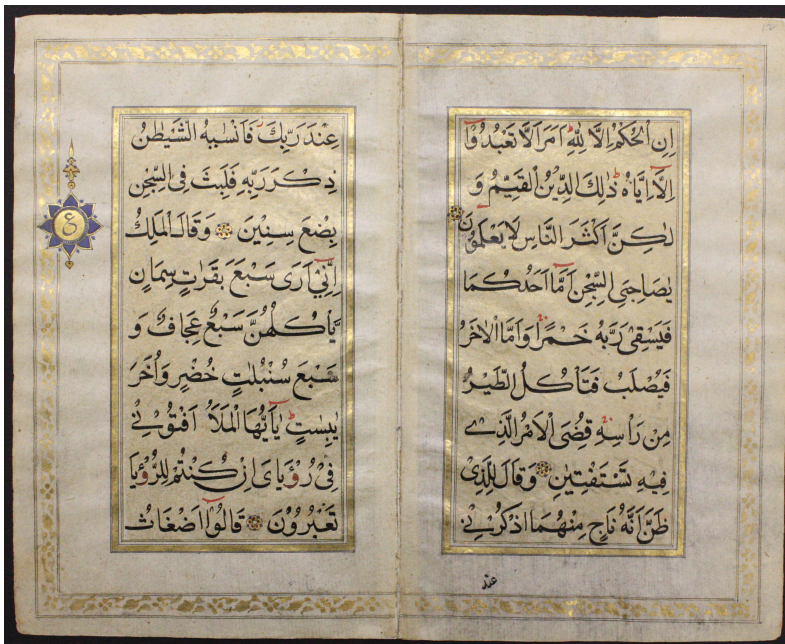 اِنِ الْحُكْمُ اِلَّا لِلّٰهِ اَمَرَ اَلَّا تَعْبُدُوْٓا
اِلَّٓا اِيَّاهُ ذٰلِكَ الدِّيْنُ الْقَيِّمُ وَ
لٰكِنَّ اَكْثَرَ النَّاسِ لَا يَعْلَمُوْنَ
يٰصَاحِبَيِ السِّجْنِ اَمَّٓا اَحَدُكُمَا
فَيَسْقٖى رَبَّهُ خَمْرًا وَاَمَّا الْاٰخَرُ
فَيُصْلَبُ فَتَاْكُلُ الطَّيْرُ
مِنْ رَاْسِهٖ قُضِيَ الْاَمْرُ الَّذٖى
فٖيهِ تَسْتَفْتِيٰنِ وَقَالَ لِلَّذٖى
ظَنَّ اَنَّهُ نَاجٍ مِنْهُمَا اذْكُرْنٖى
عند
عِنْدَ رَبِّكَ فَاَنْسٰيهُ الشَّيْطٰنُ
ذِكْرَ رَبِّهٖ فَلَبِثَ فِى السِّجْنِ
بِضْعَ سِنٖيْنَ وَقَالَ الْمَلِكُ
اِنّٖٓى اَرٰى سَبْعَ بَقَرٰتٍ سِمَانٍ
يَّاْكُلُهُنَّ سَبْعٌ عِجَافٌ وَ
سَبْعَ سُنْبُلٰتٍ خُضْرٍ وَاُخَرَ
يٰبِسٰتٍ يٰٓاَيُّهَا الْمَلَاُ اَفْتُوْنٖى
فٖى رُؤْيَاىَ اِنْ كُنْتُمْ لِلرُّؤْيَا
تَعْبُرُوْنَ قَالُوْٓا اَضْغَاثُ
ع